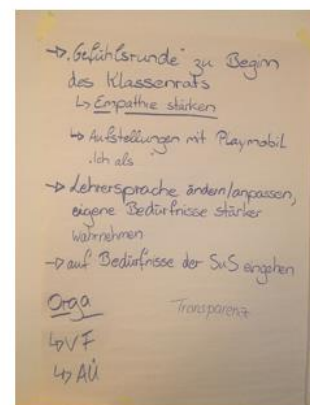 → „Gefühlsrunde" zu Beginn
des Klassenrats
↳ Empathie stärken
↳ Aufstellungen mit Playmobil
„Ich als
→ Lehrersprache ändern/anpassen,
eigene Bedürfnisse stärker
wahrnehmen
→ auf Bedürfnisse der SuS eingehen
Orga
Transparenz
↳ VF
↳ AÜ